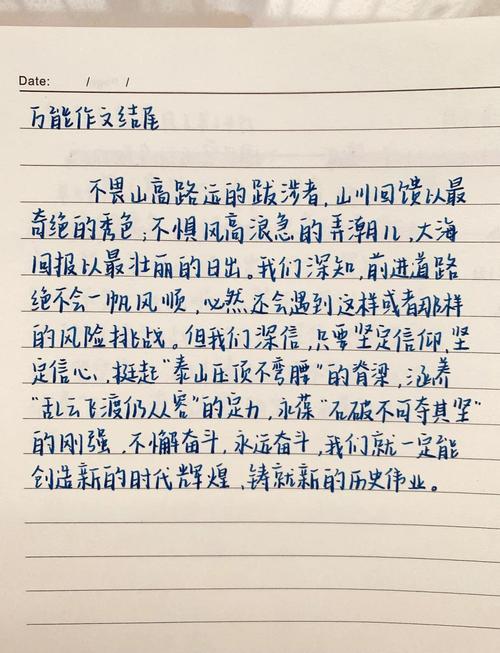 Date: / /
万能作文结尾
不畏山高路远的跋涉者，山川回馈以最
奇绝的秀色；不惧风高浪急的弄潮儿，大海
回报以最壮丽的日出。我们深知，前进道路
绝不会一帆风顺，必然还会遇到这样或者那样
的风险挑战。但我们深信，只要坚定信仰、坚
定信心，挺起“泰山压顶不弯腰”的脊梁，涵养
“乱云飞渡仍从容”的定力，永葆“石破不可夺其坚”
的刚强，不懈奋斗，永远奋斗，我们就一定能
创造新的时代辉煌，铸就新的历史伟业。